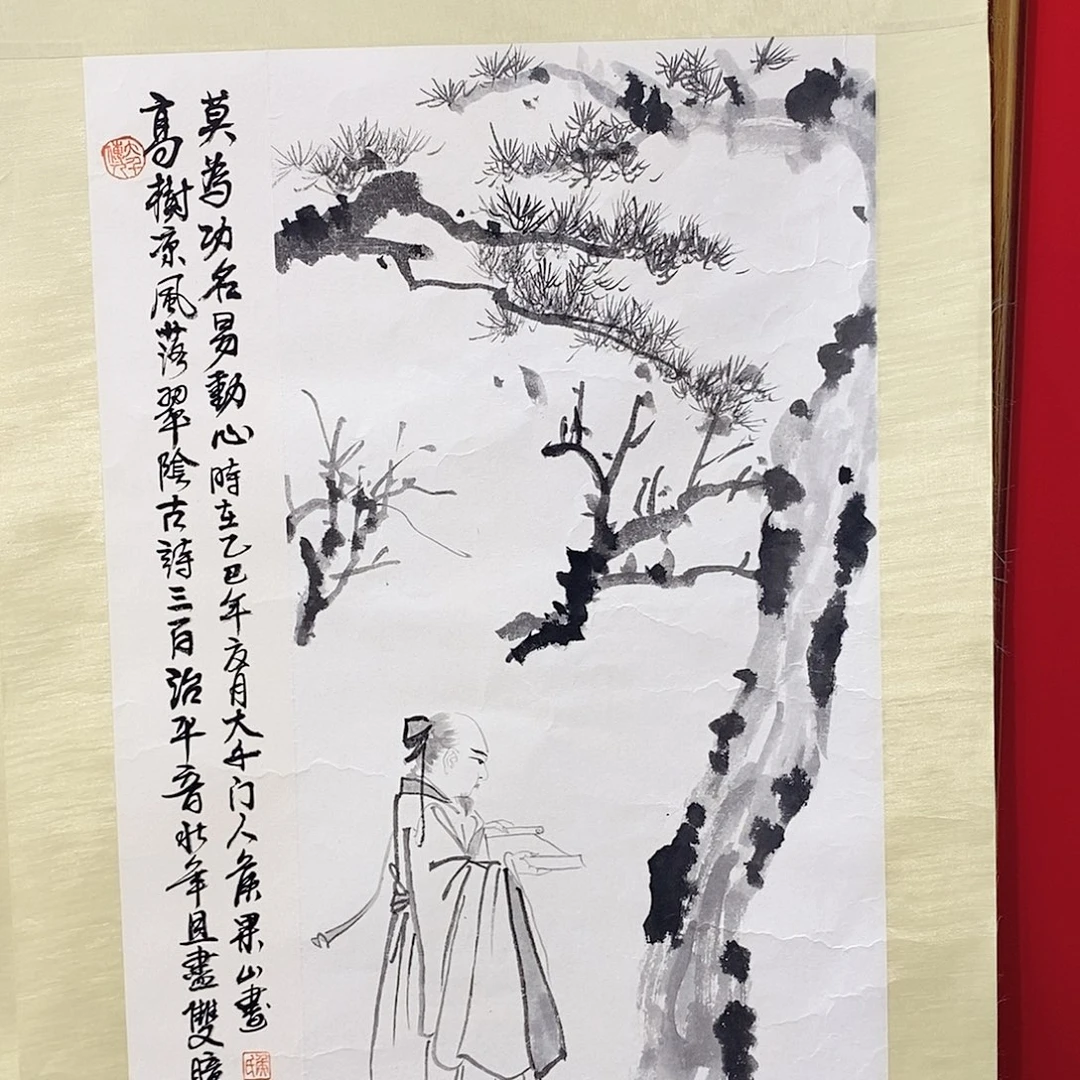 高樹凉風落翠陰古詩三百治平音壯年且盡雙瞳
莫為功名易動心時在乙巳年夏月大千门人侯果山畫